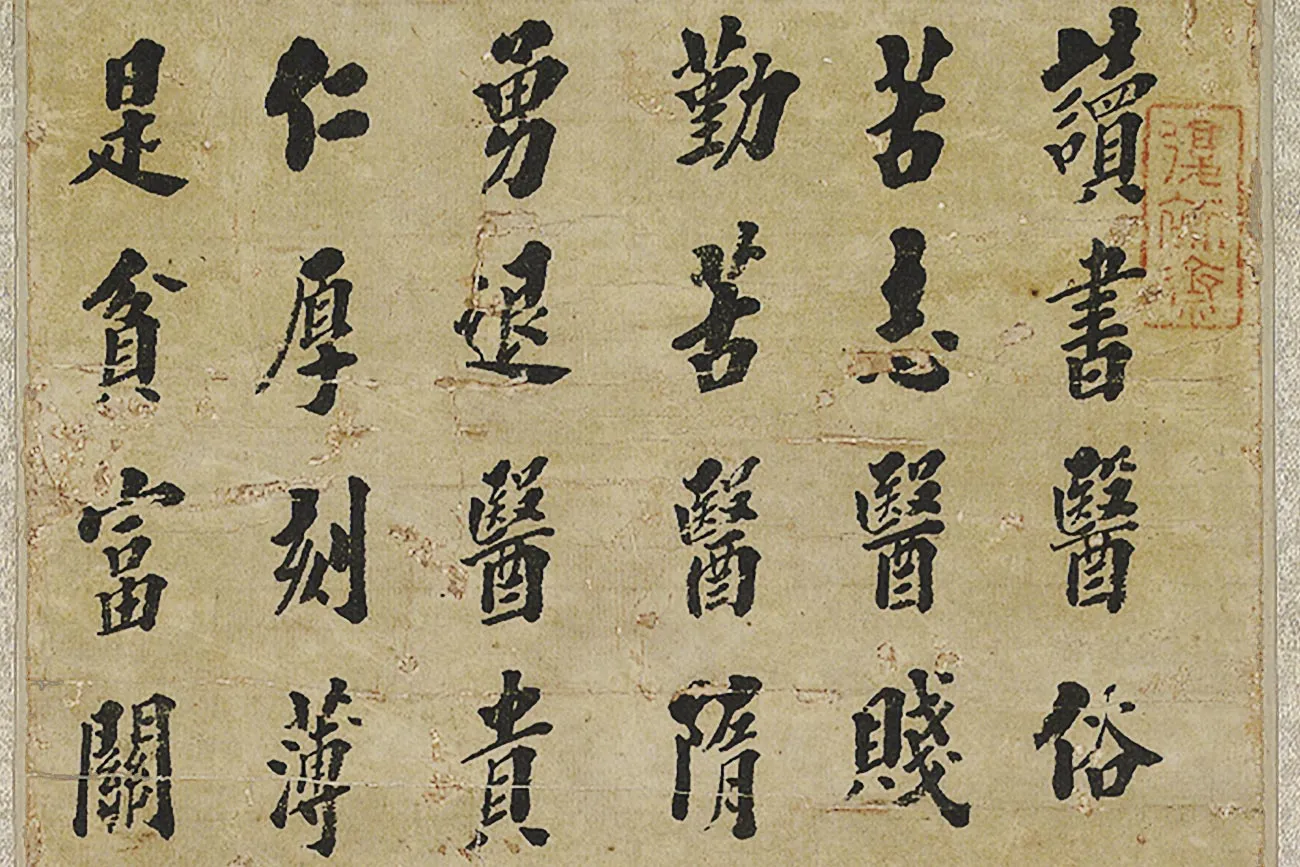 讀書醫俗
苦志醫賤
勤苦醫隋
勇退醫貴
仁厚刻薄
是貧富關